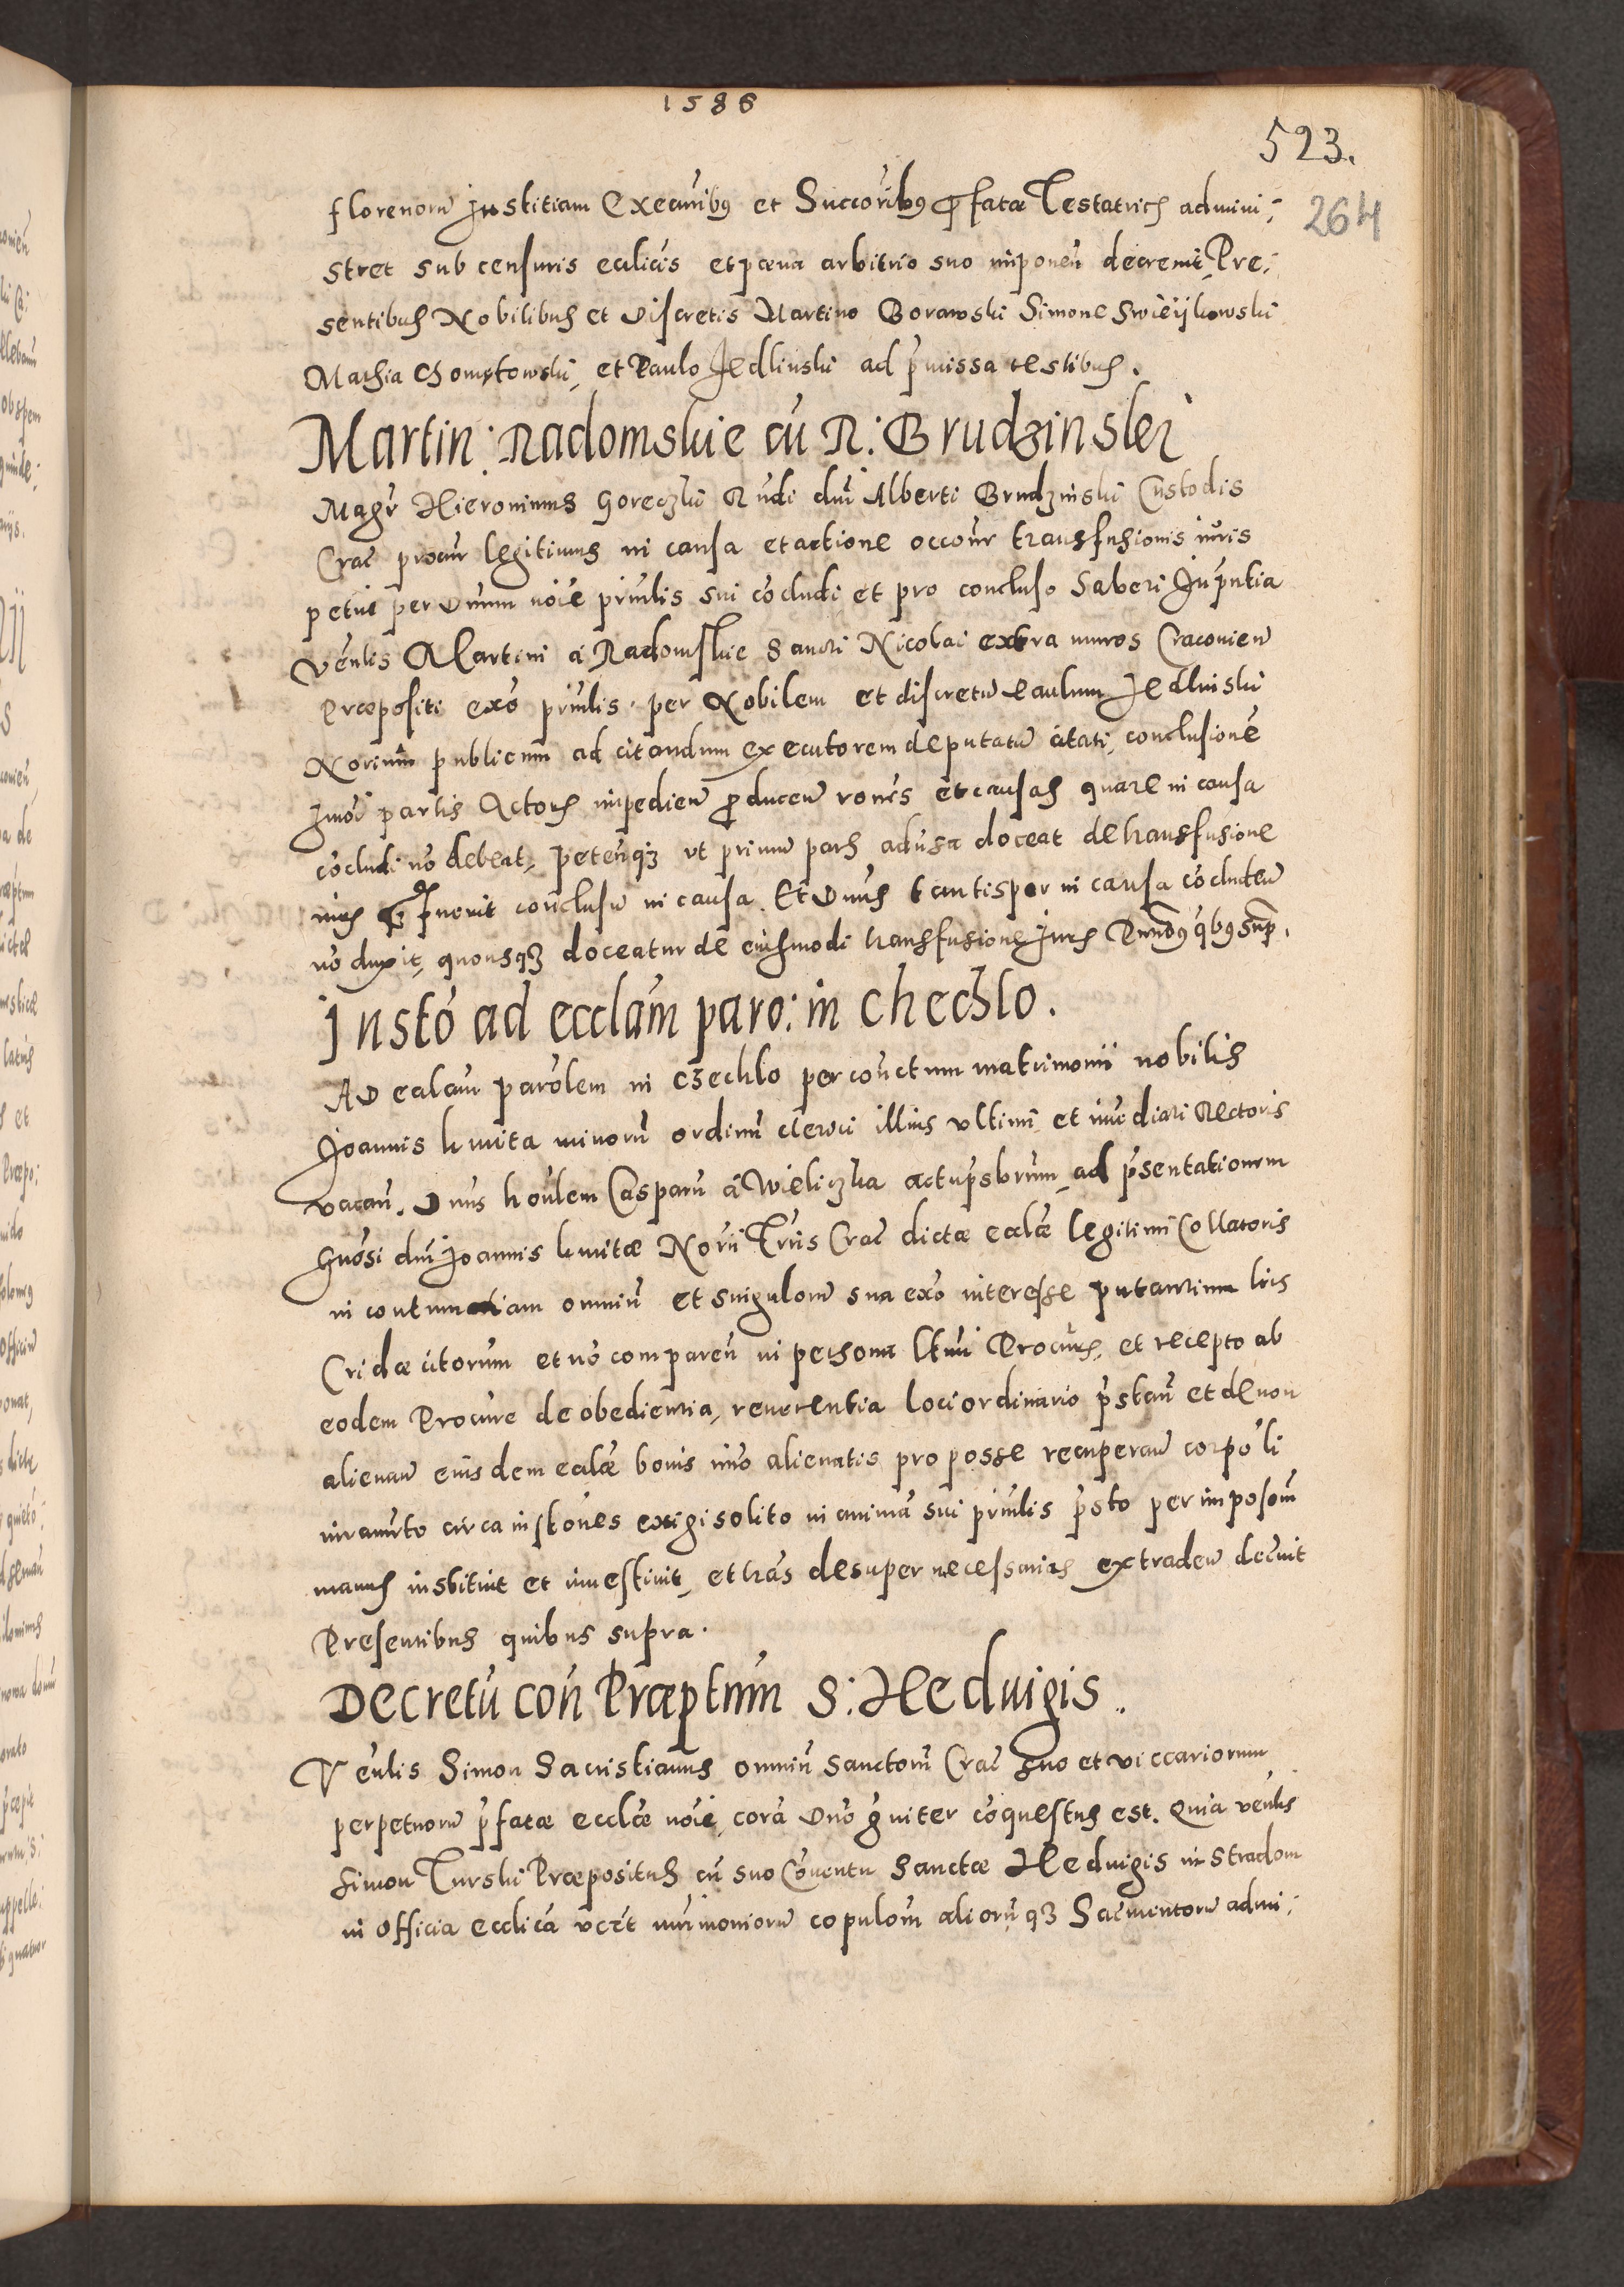 1586
523.
264
florenorũ Justitiam Execuribꝫ et Succoribꝫ ꝓfatæ Testatricis admini-
stret sub censuris ecclicis et pœna arbitrio suo imponeñ decrevit, Pre-
sentibus Nobilibus et Discretis Martino Borawski Simone Swieijkowski
Mathia Chomętowski, et Paulo Jedlinski ad p̃missa testibus.
Martin: Radomskie cũ R: Brudzinski
Magr̃ Hieronimus Goreczki R̃ndi dñi Alberti Brudzinski Custodis
Crac̃ procur̃ legitimus in causa et actione occoñr transfusionis iuris
petiit per Dnum noĩe prin̄lis sui cõcludi, et pro concluso haberi In p̃ntia
Veñlis Martini à Radomskie Sancti Nicolai extra muros Cracovieñ
Præpositi exõ prin̄lis per Nobilem et discretũ Paulum Jedlinski
Norium̃ publicum ad citandum executorem deputatũ citati, conclusionẽ
hmõi partis Actoris impedieñ ꝓduceñ roñes et causas quare in causa
cõcludi nõ debeat, peteñqꝫ ut primũ pars adũsa doceat de transfusione
iuris conclusũ in causa. Et Dnus tantisper in causa cõcludeñ
nõ duxit, quousqꝫ doceatur de eiusmodi transfusione Juris Pñtibꝫ qˈbꝫ sup̃.
Instõ ad ecclam̃ paro: in Chechlo.
AD ecclam̃ parolẽm in Czechlo per conctum̃ matrimonii nobilis
Joannis Kmita minorũ ordinũ clerici illius ultimi, et imẽdiati Rectoris
vacañ. Dnus honlem̃ Casparũ à Wieliczka actu p̃sbrum̃, ad p̃sentationem
Gnosi dñi Joannis Kmitæ Norii Tr̃ris Crac̃ dictæ ecclæ legitimi Collatoris
in contumatiam omniũ et singulorũ sua exõ interesse putantium lris
Cridæ citorum et nõ compareñ in persona ltimi Procuris, et recepto ab
eodem Procure de obedientia, reverentia loci ordinario p̃stañ et de non
alienañ eiusdem ecclæ bonis imõ alienatis pro posse recuperañ corpoˈli
iuramˈto circa instones exigi solito in animã sui prin̄lis p̃sto per imposom̃
manus instituit et investivit, et lras desuper necessarias extradeñ decˈvit
Presentibus quibus supra.
Decretũ coñ Præptum̃ S: Heduigis.
Veñlis Simon Sacristianus omniũ Sanctorũ Crac̃ suo et viccariorum
perpetuorũ p̃fatæ ecclæ noĩe, corã Dnõ gˈviter cõquestus est. Quia veñlis
Simon Turski Præpositus cũ suo Cõventu Sanctæ Heduigis in Stradom
in officia ecclica utˈ mrimoniorũ copulom̃ aliorũqꝫ Sacˈmentorũ admi-